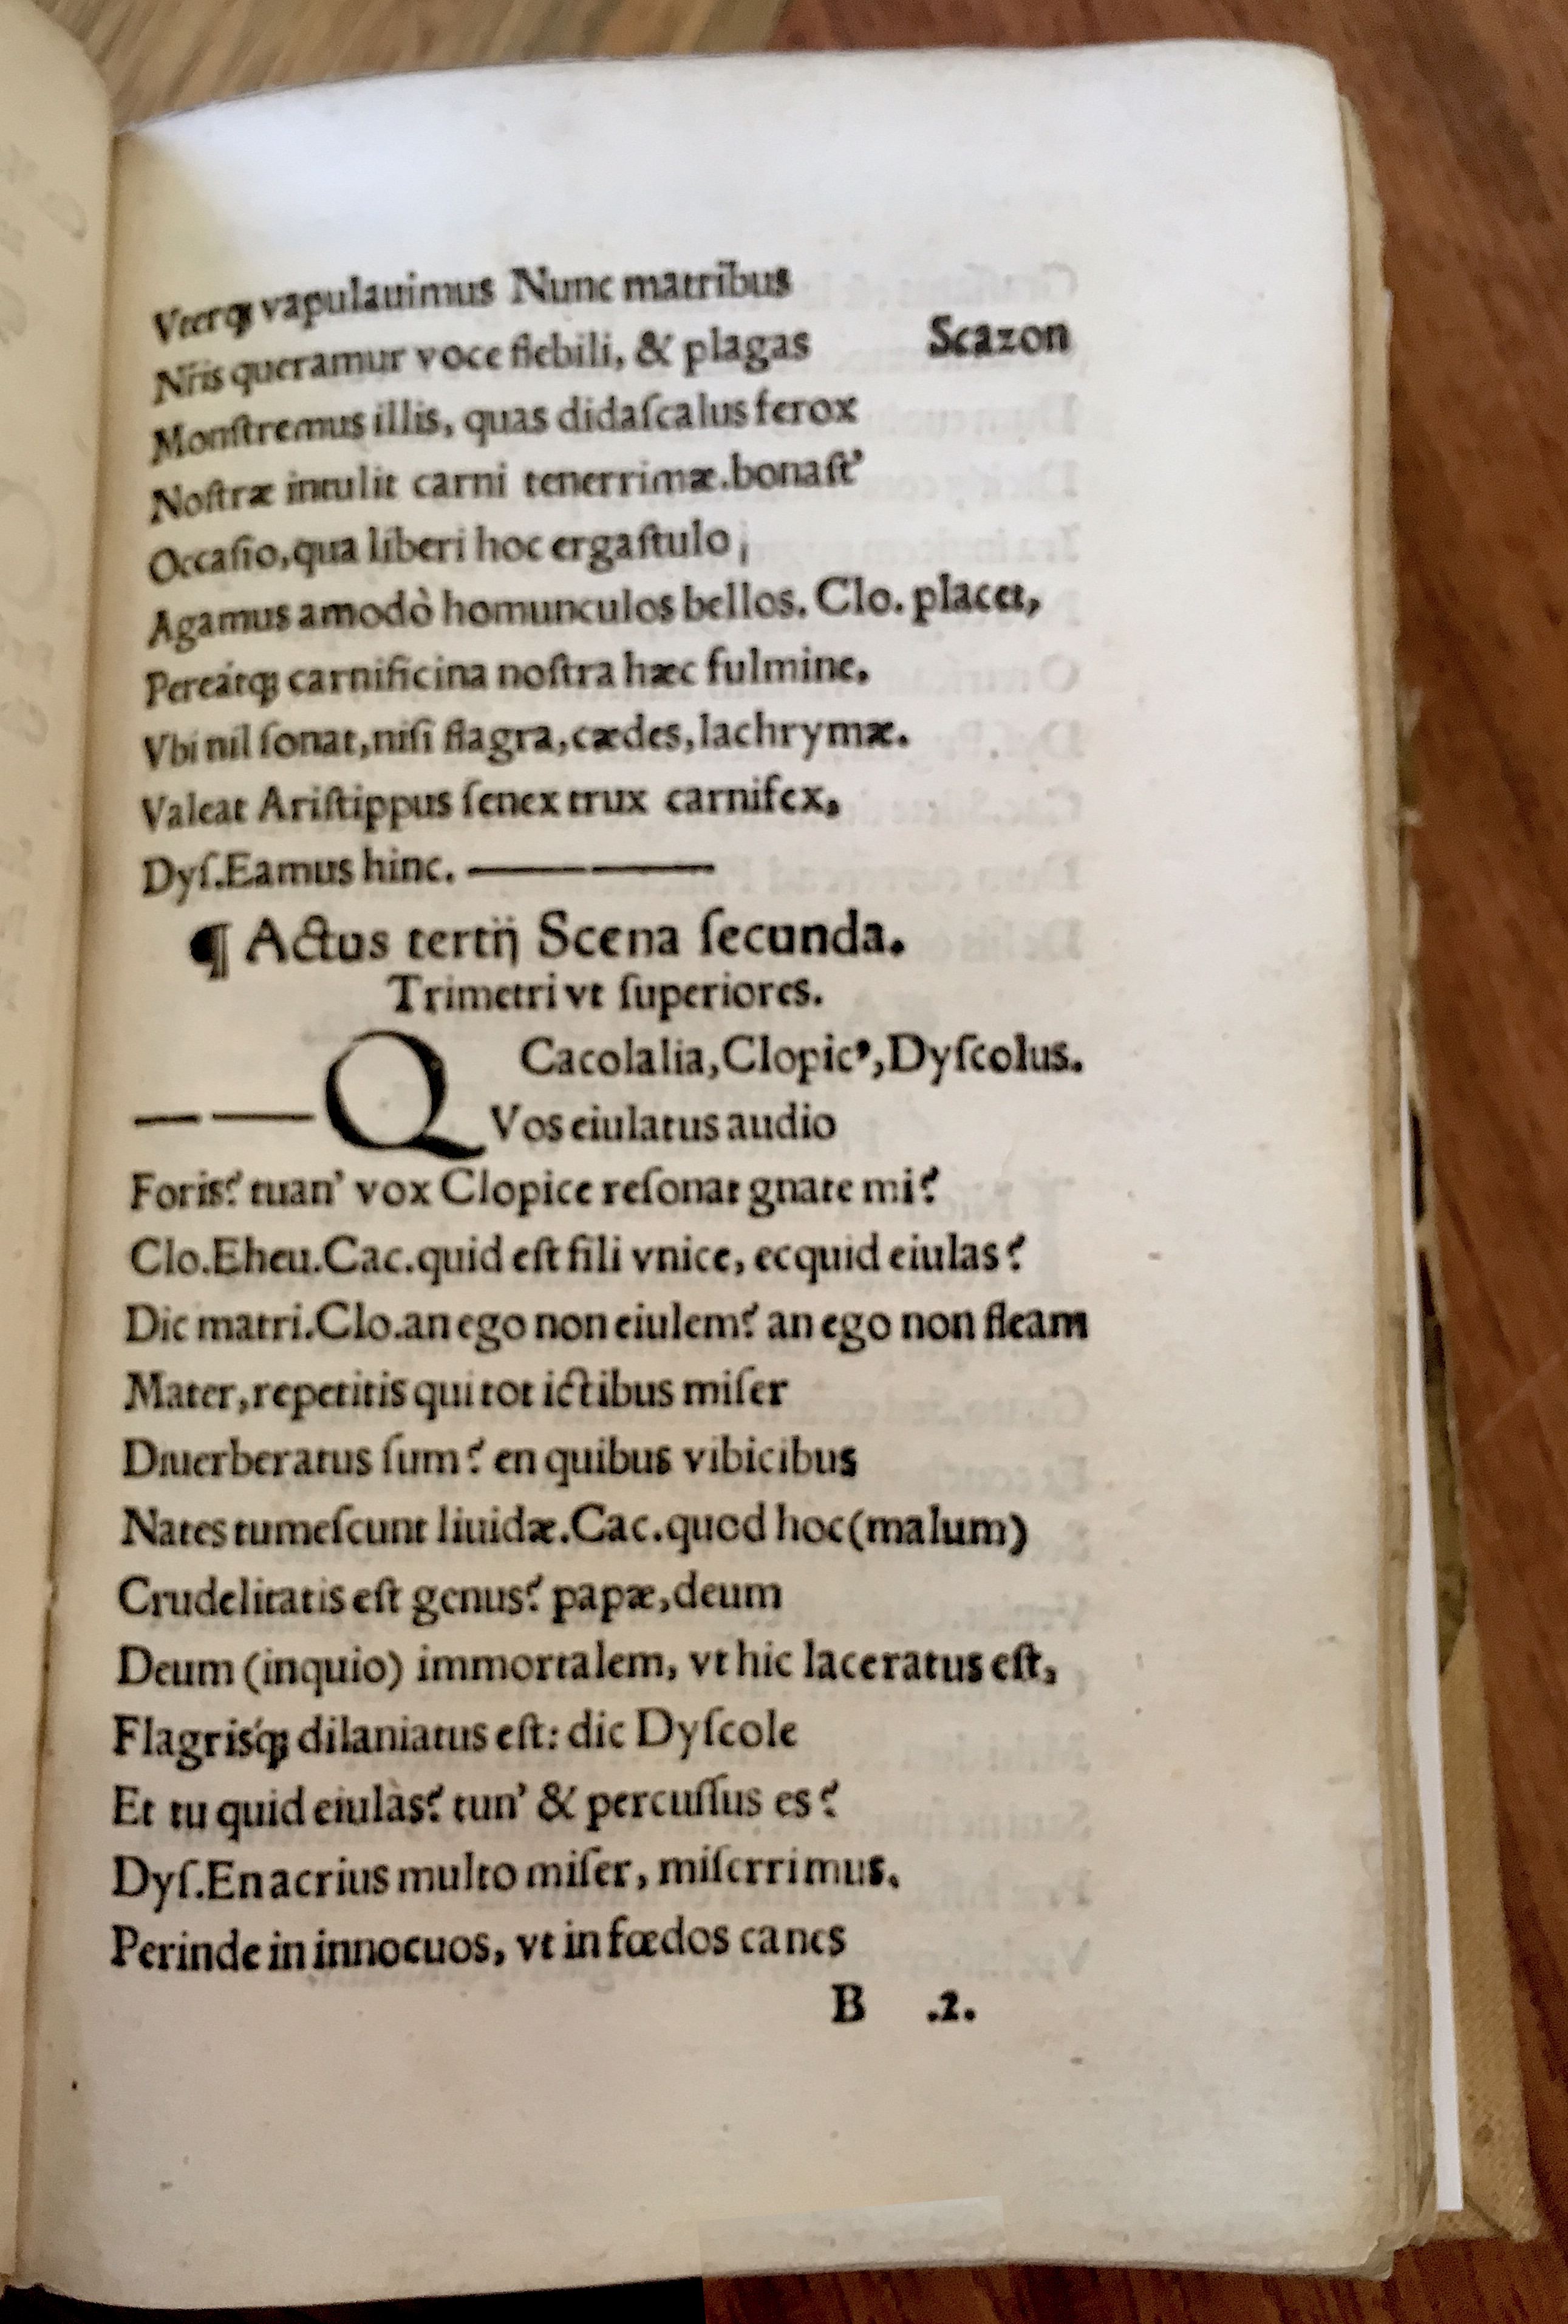 Vterq; vapulauimus Nunc matribus
Nr̃is queramur voce flebili, & plagas Scazon
Monſtremus illis, quas didaſcalus ferox
Noſtræ intulit carni tenerrimæ.bonaſt’
Occaſio,qua liberi hoc ergaſtulo,
Agamus amodò homunculos bellos. Clo. placet,
Pereátq; carnificina noſtra hæc fulmine.
Vbi nil ſonat,niſi flagra,cædes,lachrymæ.
Valeat Ariſtippus ſenex trux carnifex,
Dyſ.Eamus hinc. ————
¶ Actus tertij Scena ſecunda.
Trimetri vt ſuperiores.
Cacolalia,Clopicꝰ,Dyſcolus.
— — QVos eiulatus audio
Foris? tuan’ vox Clopice reſonat gnate mi?
Clo.Eheu.Cac.quid eſt fili vnice, ecquid eiulas?
Dic matri.Clo.an ego non eiulem? an ego non fleam
Mater,repetitis qui tot ictibus miſer
Diuerberatus ſum? en quibus vibicibus
Nates tumeſcunt liuidæ.Cac.quod hoc(malum)
Crudelitatis eſt genus? papæ,deum
Deum (inquio) immortalem, vt hic laceratus eſt,
Flagriśq; dilaniatus eſt: dic Dyſcole
Et tu quid eiulàs? tun’ & percuſſus es?
Dyſ.En acrius multo miſer, miſerrimus.
Perinde in innocuos, vt in fœdos canes
B .2.